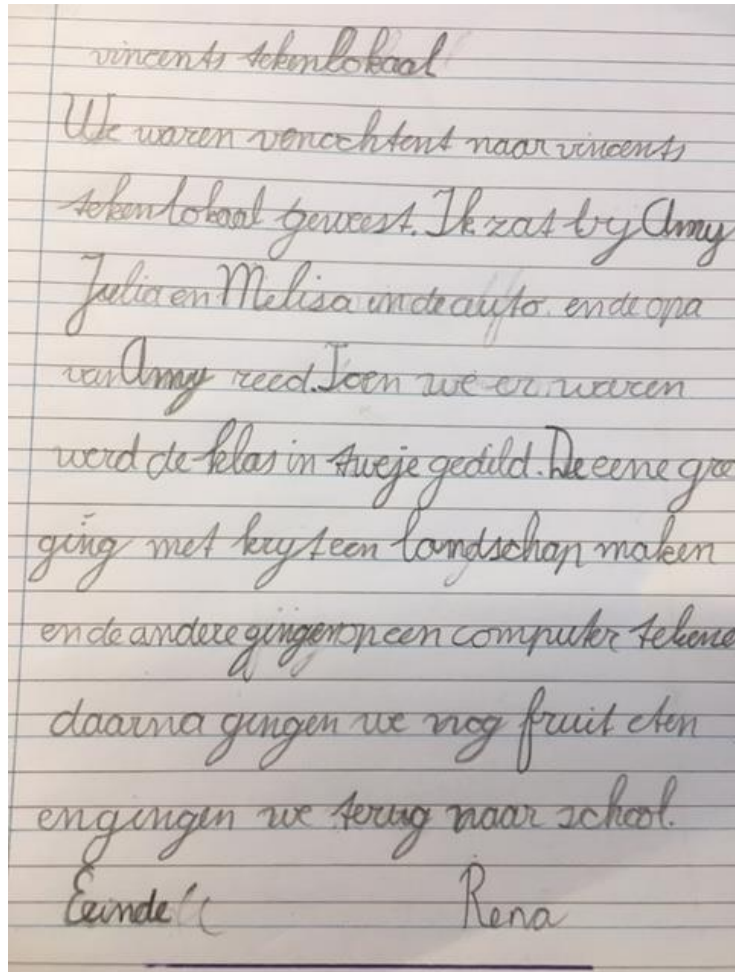 vincents tekenlokaal
We waren venochtent naar vincents
tekenlokaal geweest. Ik zat by Amy
Julia en Melisa in de auto. en de opa
van Amy reed. Toen we er waren
werd de klas in tweje gedild. De eene groe
ging met kryt een landschap maken
en de andere gingen op een computer tekene
daarna gingen we nog fruit eten
en gingen we terug naar school.
Eeinde Rena